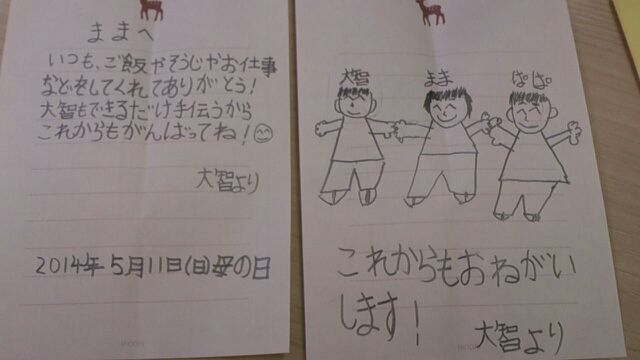 ままへ
いつも、ご飯やそうじやお仕事
などをしてくれてありがとう！
大智もできるだけ手伝うから
これからもがんばってね！
大智より
2014年5月11日(日)母の日
大智
まま
ぱぱ
これからもおねがい
します！
大智より